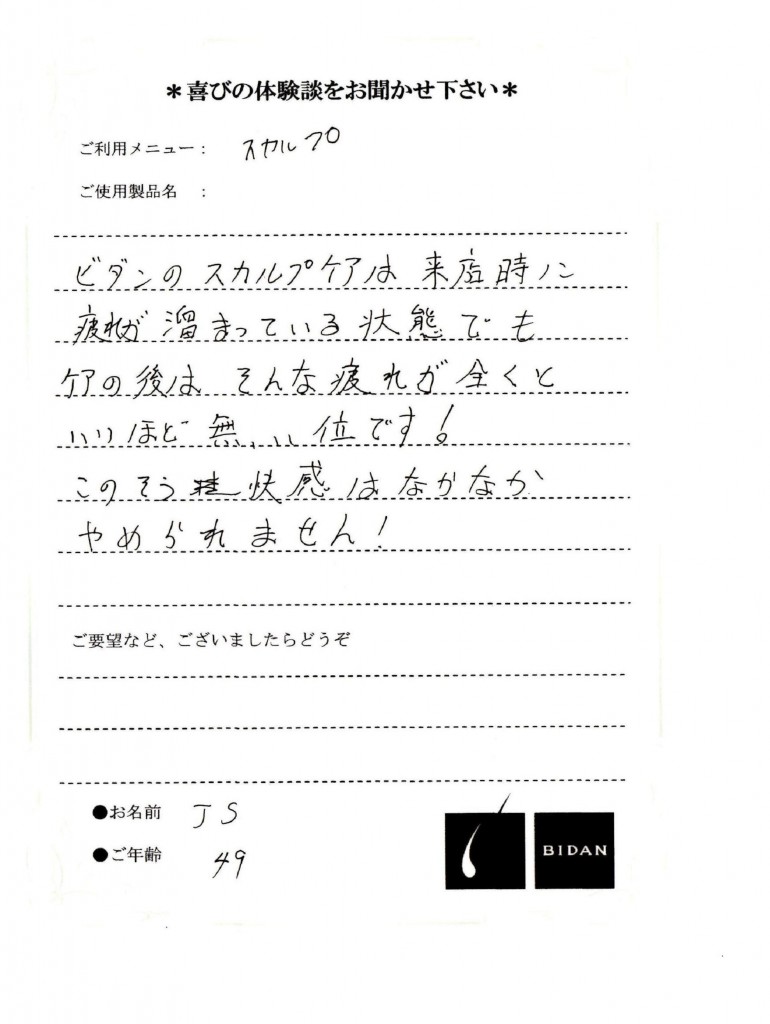 ＊喜びの体験談をお聞かせ下さい＊
ご利用メニュー： スカルプ
ご使用製品名 ：
ビダンのスカルプケアは来店時に
疲れが溜まっている状態でも
ケアの後はそんな疲れが全くと
いいほど無いい位です！
このそう快感はなかなか
やめられません！
ご要望など、ございましたらどうぞ
●お名前 JS
●ご年齢 49
BIDAN